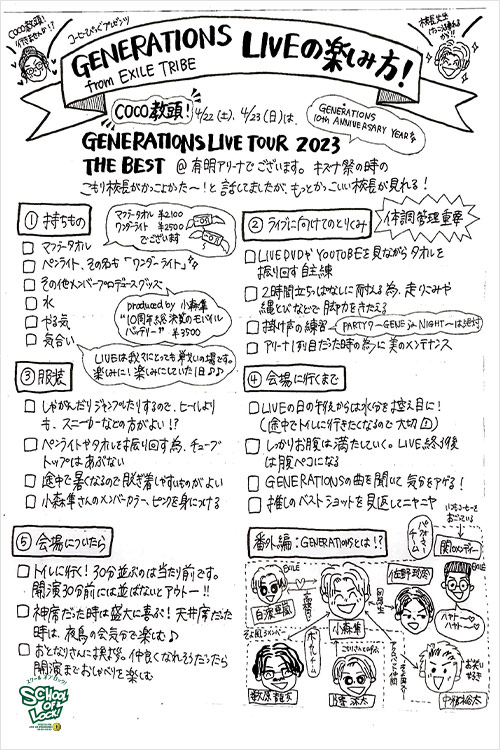 COCO教頭!
行きませんか!?
コーヒーぴっぴ
GENERATIONS LIVEの楽しみ方!
from EXILE TRIBE
COCO教頭! 4/22(土)、4/23(日)は、
GENERATIONS
10th ANNIVERSARY YEAR
GENERATIONS LIVE TOUR 2023
THE BEST @有明アリーナでございます。キズナ祭の時の
こもり校長がかっこよかた〜!と話してましたが、もっとかっこいい校長が見れる!
① 持ちもの
マフラータオル ¥2100
ワンダーライト ¥2500
でございます
□ マフラータオル
□ ペンライト、その名も「ワンダーライト」
□ その他メンバープロデュースグッズ
□ 水
□ やる気
□ 気合い
produced by 小森隼
"10周年超決賛のモバイル
バッテリー" ¥3500
LIVEは我々にとっても戦いの場です。
楽しみに!楽しみにしていて!
② ライブに向けてのとりくみ
体調管理重要
□ LIVE DVDやYOUTUBEを見ながらタオルを
振り回す自主練
□ 2時間立ちっぱなしに耐える為、走りこみや
縄とびなどで脚力をきたえる
□ 掛け声の練習
PARTY 7 〜GENE is NIGHT〜は絶対
□ アリーナ1列目だった時の為に美のメンテナンス
③ 服装
□ しゃがんだりジャンプしたりするので、ヒールより
も、スニーカーなどの方がよい!?
□ ペンライトやタオルを振り回す為、チューブ
トップはあぶない
□ 途中で暑くなるので脱ぎ着しやすいものがよい
□ 小森隼さんのメンバーカラー、ピンクを身につける
④ 会場に行くまで
□ LIVEの日の午後からは水分を控え目に!
(途中でトイレに行きたくなるので大切)
□ しっかりお腹は満たしていく。LIVE終了後
は腹ペコになる
□ GENERATIONSの曲を聞いて気分をアゲる!
□ 推しのベストショットを見返してニヤニヤ
⑤ 会場についたら
□ トイレに行く! 30分並ぶのは当たり前です。
開演30分前には並ばないとアウトー!!
□ 神席だった時は盛大に喜ぶ! 天井席だった
時は、夜鳥の会気分で楽しむ♪
□ おとなりさんに挨拶。仲良くなれそうだったら
開演までおしゃべりを楽しむ
番外編:GENERATIONSとは!?
パフォーマーチーム
関口メンディー
EXILE
EXILE
白濱亜嵐
小森隼
同級生
佐野玲於
ハヤトー♡
ハヤトー♡
ボーカルチーム
数原龍友
片寄涼太
中務裕太
スクール オブ ロック!
SCHOOL OF LOCK!